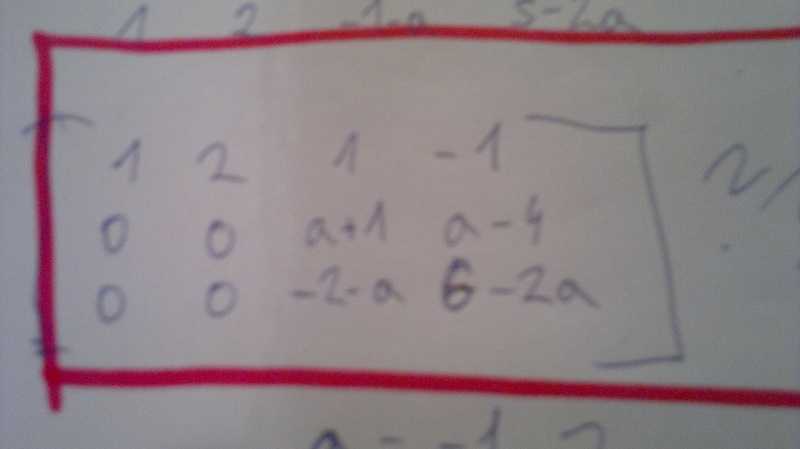 1 2 -1-a 5-2a
1 2 1 -1
0 0 a+1 a-4
0 0 -2-a 6-2a
a = -1